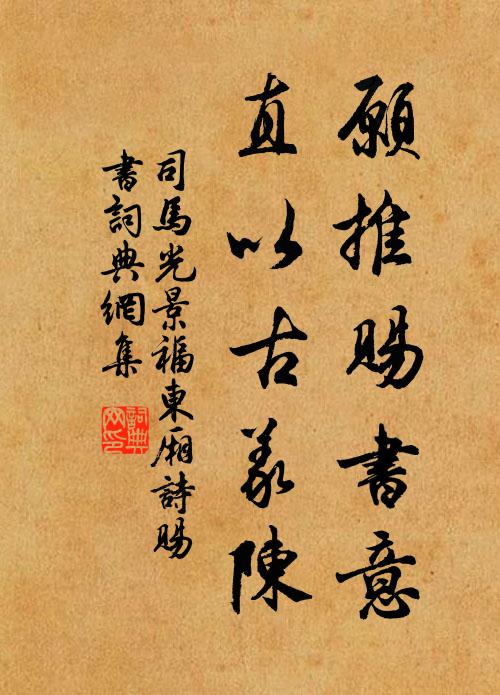 願推賜書意
直以古義陳
司馬光景福東廂詩賜
書詞典網集
詞典網印